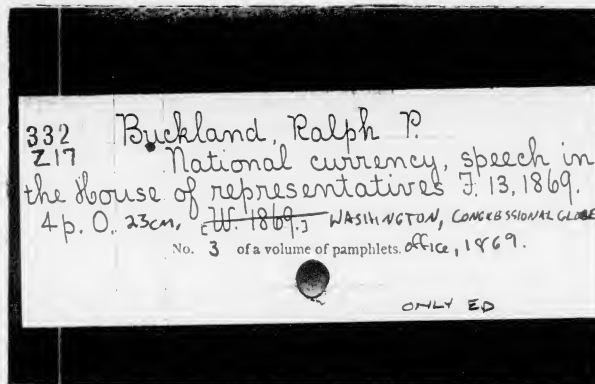 332 Buckland, Ralph P.
Z17 National currency, speech in
the House of representatives F. 13, 1869.
4p. O. 23cm, [W. 1869.] WASHINGTON, CONGRESSIONAL GLOBE
No. 3 of a volume of pamphlets. office, 1869.
ONLY ED